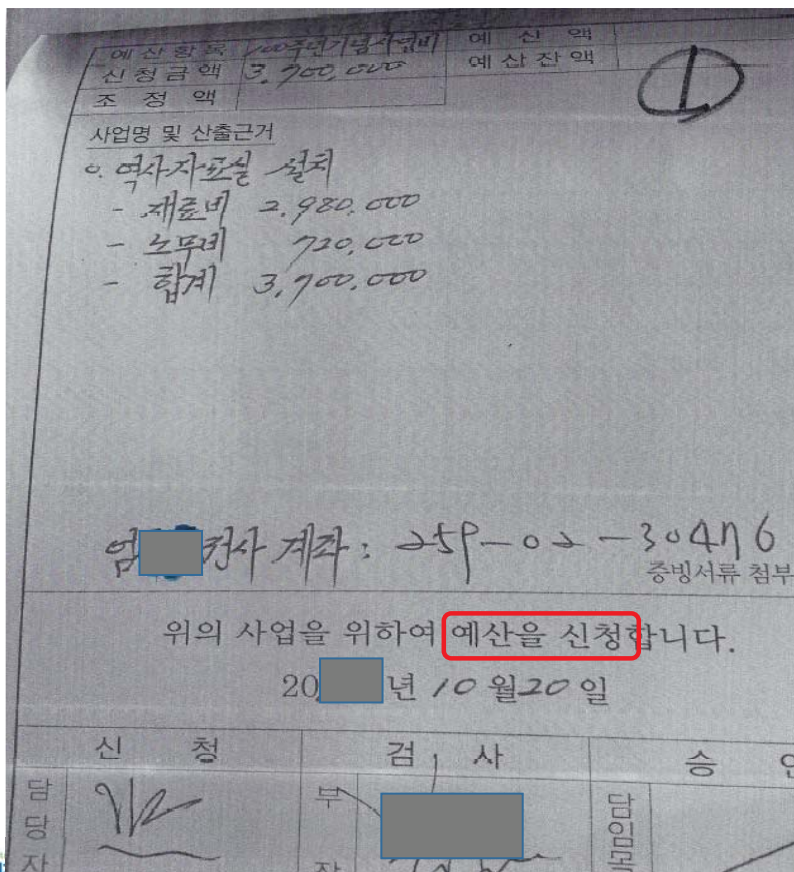 예산항목 100주년기념사업비 예산액
신청금액 3,700,000 예산잔액
조정액
①
사업명 및 산출근거
o. 역사자료실 설치
- 재료비 2,980,000
- 노무비 720,000
- 합계 3,700,000
엄 권사 계좌: 259-02-304776
증빙서류 첨부
위의 사업을 위하여 예산을 신청합니다.
20 년 10월 20일
신청 검사 승
담당자 부장 담임목